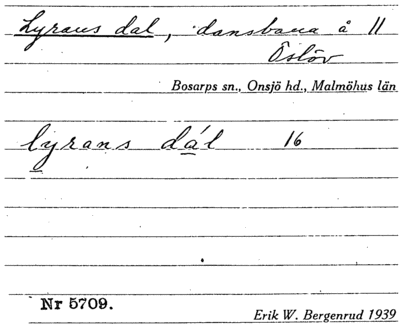 Lyrans dal, dansbana å 11
Oslöv
Bosarps sn., Onsjö hd., Malmöhus län
lyrans dál 16
Nr 5709.
Erik W. Bergenrud 1939